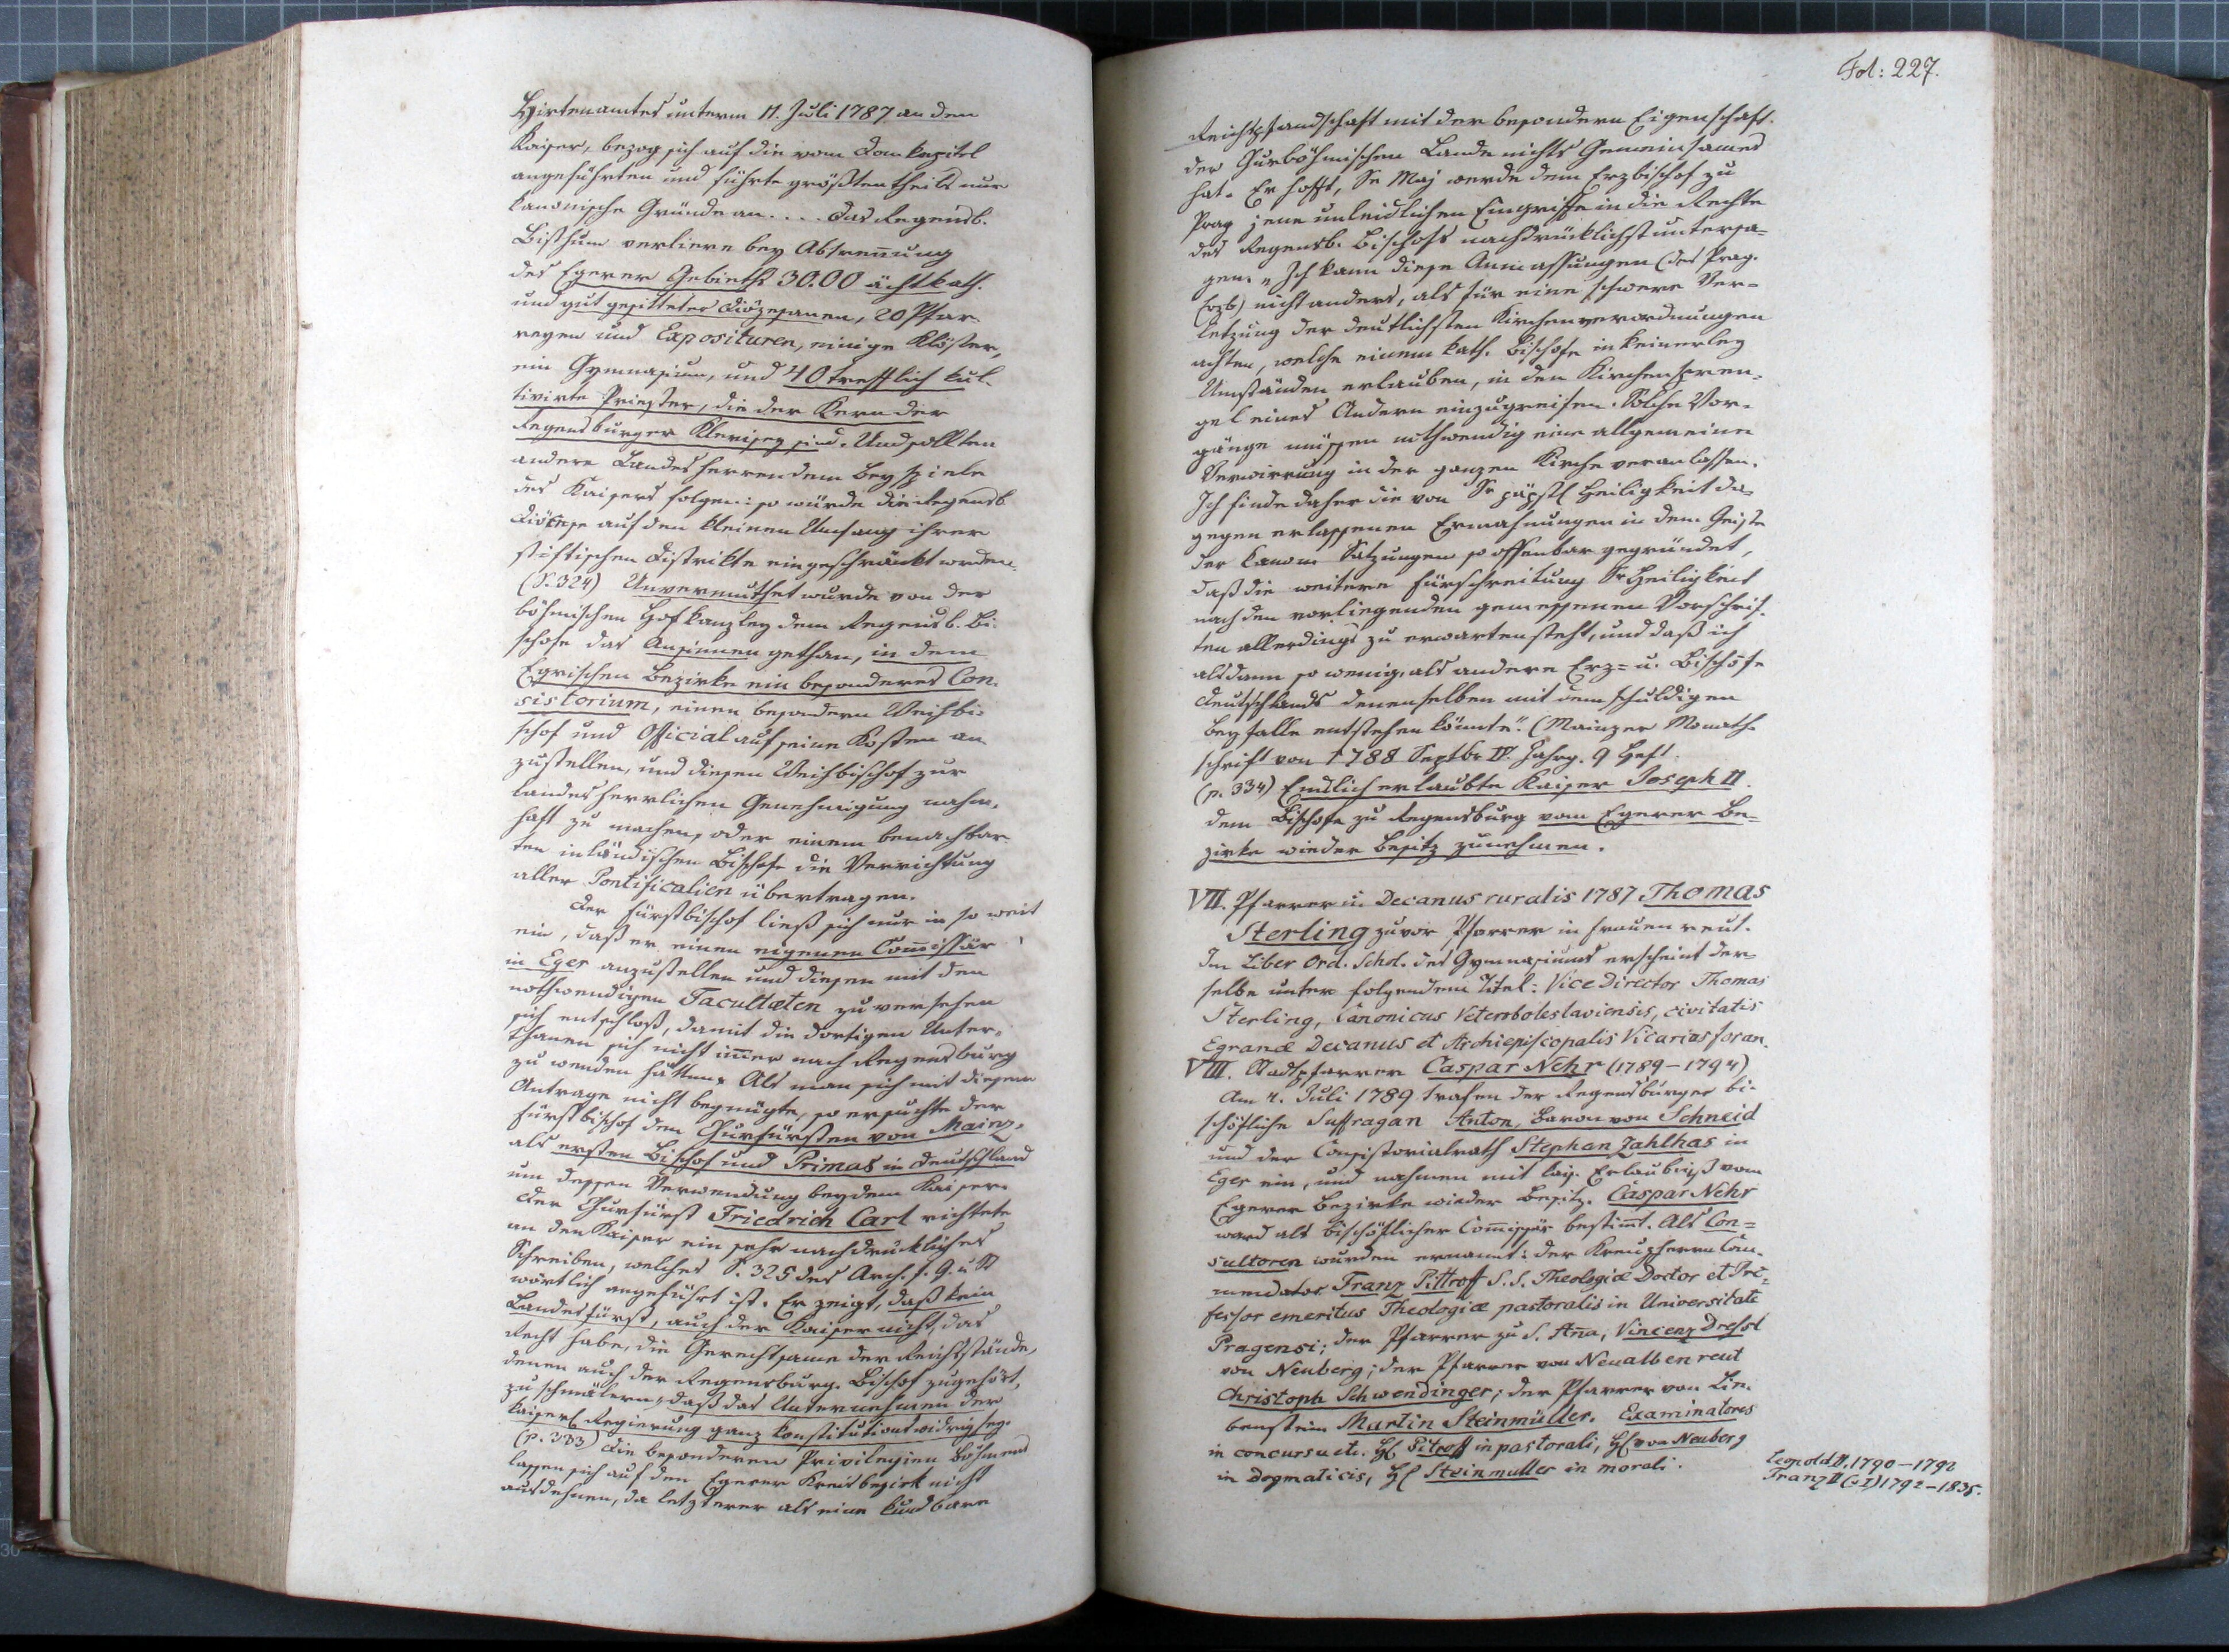 Hirtenamtes unterm 11. Juli 1787 an den
Kaiser, bezog sich auf die vom Domkapitel
angeführten und führte größtentheils nur
kanonische Gründe an.... Das Regensb.
Bisthum verliere bey Abtrennung
des Egerer Gebieths 30.00 ächtkath.
und gut gesitteter Diözesanen, 20 Pfar-
reyen und Exposituren, einige Klöster,
ein Gymnasium, und 40 trefflich kul-
tivirte Priester, die der Kern der
Regensburger Klerisey sind. Und sollten
andere Landesherren dem Beyspiele
des Kaisers folgen: so würde die Regensb.
Diözese auf den kleinen Umfang ihrer
stiftischen Distrikte eingeschränkt werden.
(S. 324) Unvermuthet wurde von der
böhmischen Hofkanzley dem Regensb. Bi-
schofe das Ansinnen gethan, in dem
Egrischen Bezirke ein besonderes Con-
sistorium, einen besondern Weihbi-
schof und Official auf seine Kosten an-
zustellen, und diesen Weihbischof zur
landesherrlichen Genehmigung nahm-
haft zu machen, oder einem benachbar-
ten inländischen Bischofe die Verrichtung
aller Pontificalien übertragen.
Der Fürstbischof ließ sich nur in so weit
ein, daß er einen eigenen Com̄issär
in Eger anzustellen und diesen mit den
nothwendigen Facultæten zu versehen
sich entschloß, damit die dortigen Unter-
thanen sich nicht im̄er nach Regensburg
zu wenden hätten. Als man sich mit diesem
Antrage nicht begnügte, so ersuchte der
Fürstbischof den Churfürsten von Mainz,
als ersten Bischof und Primas in Deutschland
um dessen Verwendung bey dem Kaiser.
Der Churfürst Friedrich Carl richtete
an den Kaiser ein sehr nachdrückliches
Schreiben, welches S. 325 des Arch. f. G. u. St
wörtlich angeführt ist. Er zeigt, daß kein
Landesfürst, auch der Kaiser nicht, das
Recht habe, die Gerechtsame der Reichsstände,
denen auch der Regensburg. Bischof zugehört,
zu schmälern, daß das Unternehmen der
kaiserl. Regierung ganz konstitutionswidrig sey.
(p. 333) Die besonderen Privilegien Böhmens
lassen sich auf den Egerer Kreisbezirk nicht
ausdehnen, da letzterer als eine kundbare
Fol: 227.
Reichspfandschaft mit der besondern Eigenschaft
der Churböhmischen Lande nichts Gemeinsames
hat. Er hofft, Se Maj werde dem Erzbischof zu
Prag jene unleidlichen Eingriffe in die Rechte
des Regensb. Bischofs nachdrücklichst untersa-
gen. „Ich kann diese Anmassungen (des Prag.
Erzb) nicht anders, als für eine schwere Ver-
letzung der deutlichsten Kirchenverordnungen
achten, welche einem kath. Bischofe in keinerley
Umständen erlauben, in den Kirchenspren-
gel eines Andern einzugreifen. Solche Vor-
gänge müssen nothwendig eine allgemeine
Verwirrung in der ganzen Kirche veranlassen.
Ich finde daher die von Sr päpstl Heiligkeit da-
gegen erlassenen Ermahnungen in dem Geiste
der kanon Satzungen so offenbar gegründet,
daß die weitere Fürschreitung Sr Heiligkeit
nach den vorliegenden gemessenen Vorschrif-
ten allerdings zu erwarten steht, und daß ich
alsdann so wenig, als andere Erz- u. Bischöfe
Deutschlands denenselben mit dem schuldigen
Beyfalle entstehen könnte." (Mainzer Monath-
schrift von 1788 Septbr IV. Jahrg. 9 Heft.
(p. 334) Endlich erlaubte Kaiser Joseph II.
dem Bischofe zu Regensburg vom Egerer Be-
zirke wieder Besitz zu nehmen.
VII. Pfarrer u Decanus ruralis 1787 Thomas
Sterling zuvor Pfarrer in Frauenreut.
Im Liber Ord. Schol. des Gymnasiums erscheint der-
selbe unter folgendem Titel: Vice Director Thomas
Sterling, Canonicus Veteroboleslaviensis, civitatis
Egranæ Decanus et Archiepiscopalis Vicarius foran.
VIII. Stadtpfarrer Caspar Nehr (1789-1794)
Am 4. Juli 1789 trafen der Regensburger bi-
schöfliche Suffragan Anton, Baron von Schneid
und der Consistorialrath Stephan Zahlhas in
Eger ein, und nahmen mit kais. Erlaubniß vom
Egerer Bezirke wieder Besitz. Caspar Nehr
ward als bischöflicher Com̄issär bestim̄t. Als Con-
sultoren wurden ernannt: der Kreuzherrn Com̄-
mendator Franz Pittroff S. S. Theologiæ Doctor et Pro-
fessor emeritus Theologiæ pastoralis in Universitate
Pragensi; der Pfarrer zu S. An̄a, Vincenz Dressl
von Neuberg; der Pfarrer von Neualbenreut
Christoph Schwendinger; der Pfarrer von Lie-
benstein Martin Steinmüller. Examinatores
in concursu etc. H. Pitroff in pastorali, H. von Neuberg
in Dogmaticis, H. Steinmuller in morali.
Leopold II. 1790-1792
Franz II (I) 1792-1835.